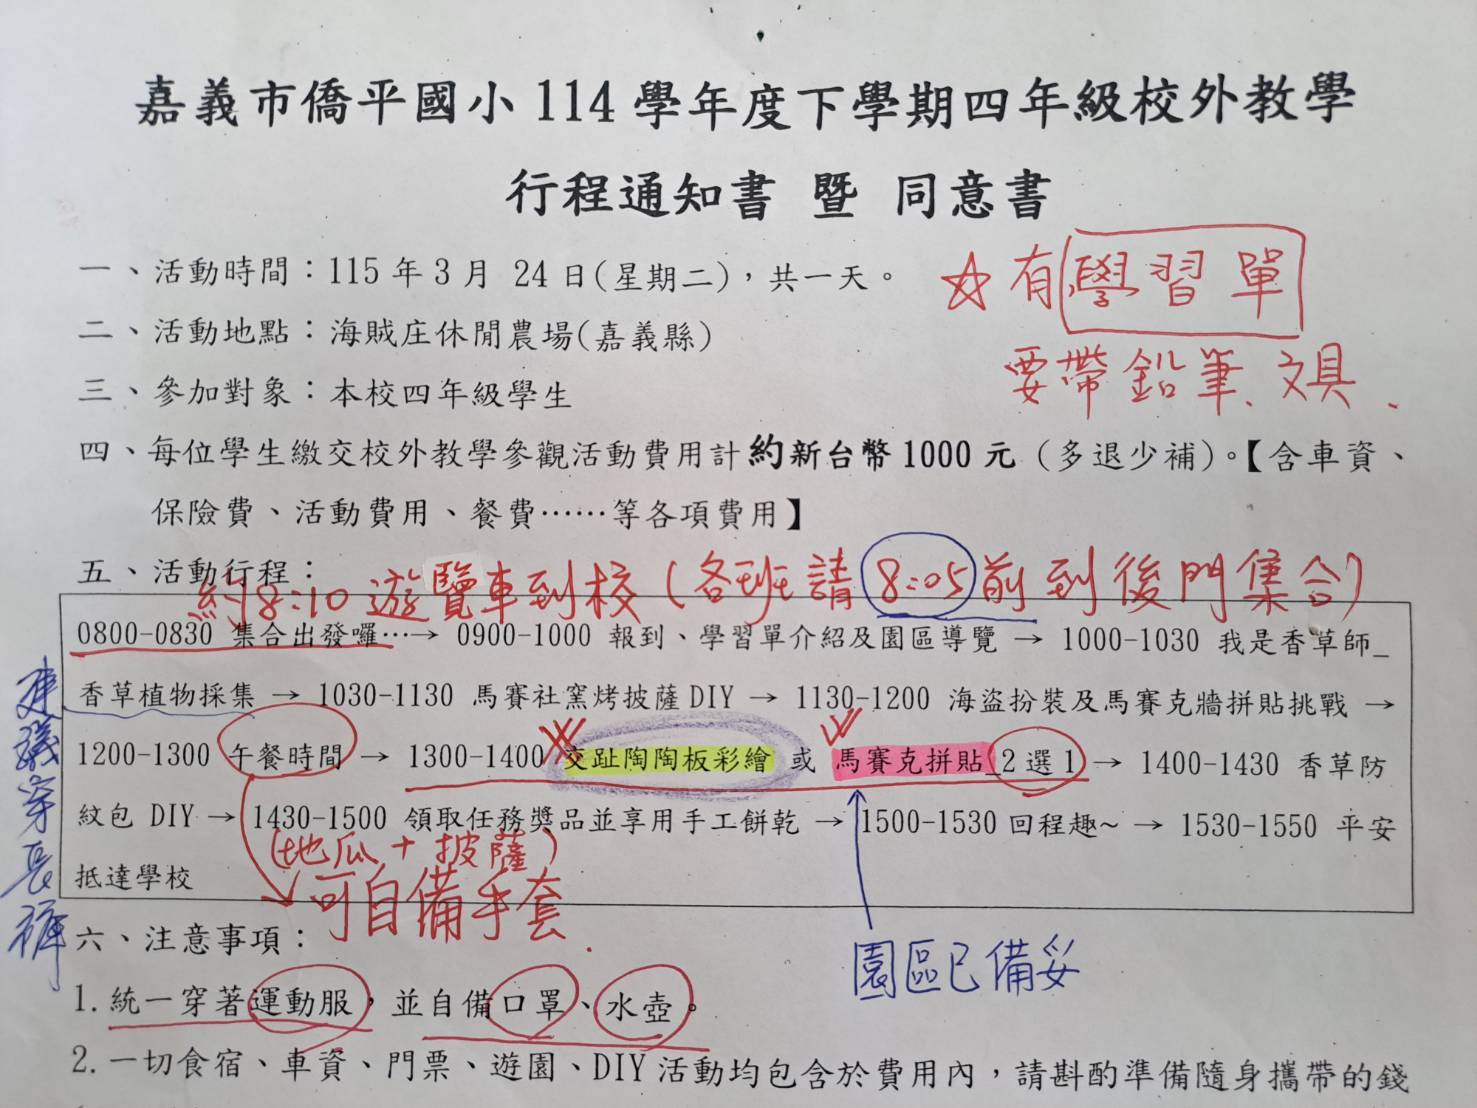 嘉義市僑平國小 114 學年度下學期四年級校外教學
行程通知書 暨 同意書
一、活動時間：115 年 3 月 24 日(星期二)，共一天。
☆有學習單
二、活動地點：海賊庄休閒農場(嘉義縣)
要帶鉛筆、文具.
三、參加對象：本校四年級學生
四、每位學生繳交校外教學參觀活動費用計約新台幣 1000 元（多退少補）。【含車資、
保險費、活動費用、餐費……等各項費用】
五、活動行程：
約8:10遊覽車到校(各班請8:05前到後門集合)
0800-0830 集合出發囉…→ 0900-1000 報到、學習單介紹及園區導覽 → 1000-1030 我是香草師_
香草植物採集 → 1030-1130 馬賽社窯烤披薩 DIY → 1130-1200 海盜扮裝及馬賽克牆拼貼挑戰 →
1200-1300 午餐時間 → 1300-1400 交趾陶陶板彩繪 或 馬賽克拼貼_2 選 1 → 1400-1430 香草防
蚊包 DIY → 1430-1500 領取任務獎品並享用手工餅乾 → 1500-1530 回程趣~ → 1530-1550 平安
(地瓜+披薩)
抵達學校
可自備手套.
建議穿長褲
園區已備妥
六、注意事項：
1.統一穿著運動服，並自備口罩、水壺。
2.一切食宿、車資、門票、遊園、DIY 活動均包含於費用內，請斟酌準備隨身攜帶的錢